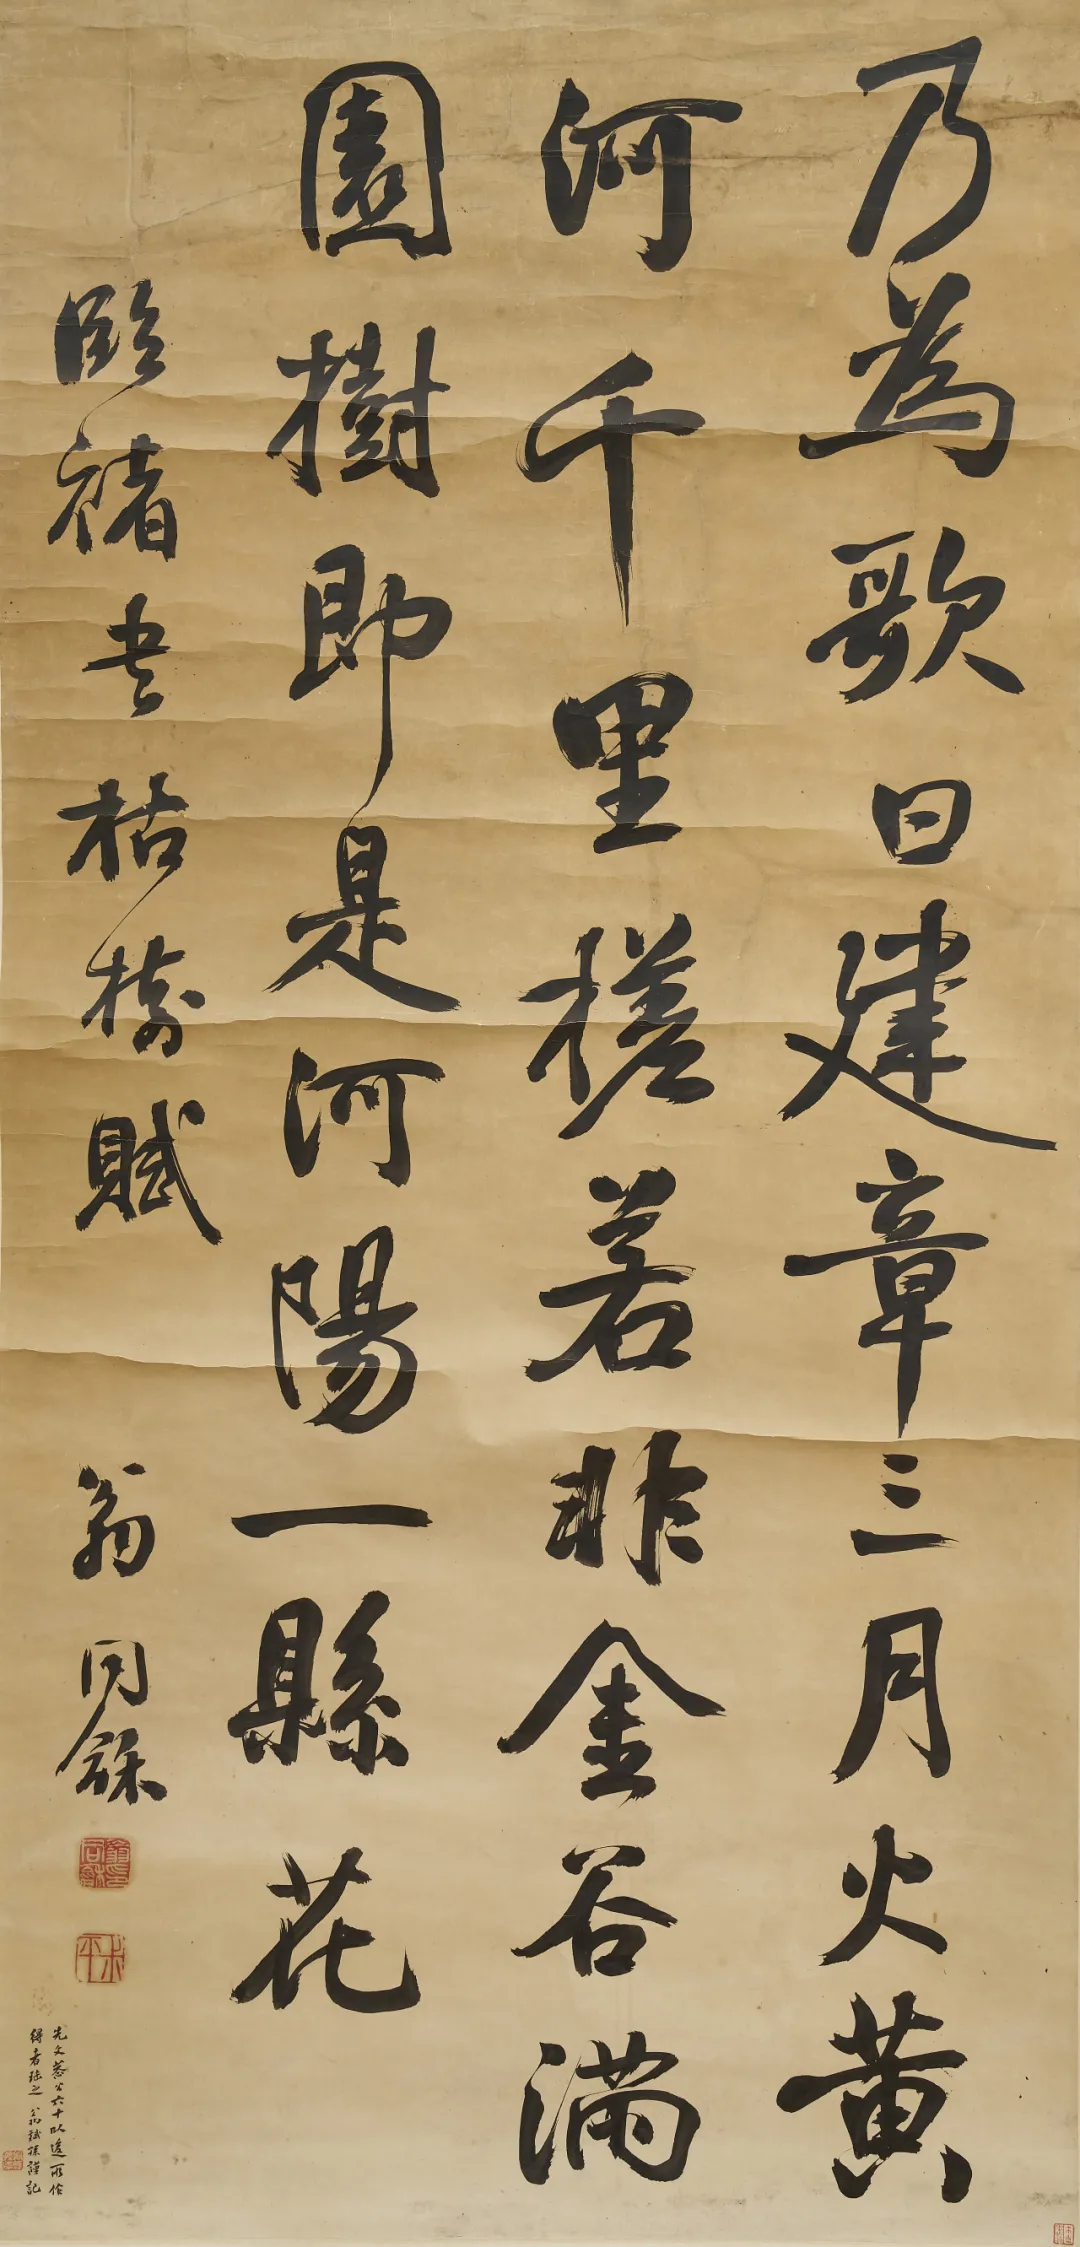 乃為歌曰建章三月火黃
河千里槎若非金谷滿
園樹即是河陽一縣花
臨褚書枯樹賦
翁同龢
翁同龢印
叔平
先文恭公六十以後所作
得者珍之 翁斌孫謹記